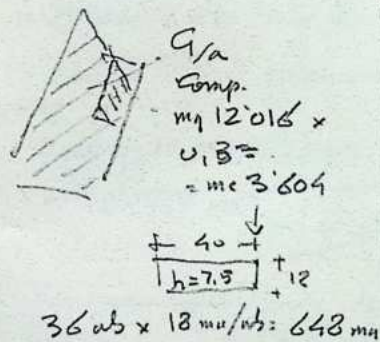 G/a
comp.
mq 12'016 ×
0,3 =
= mc 3'604
40
h=7.5
12
36 ab × 18 mq/ab = 648 mq